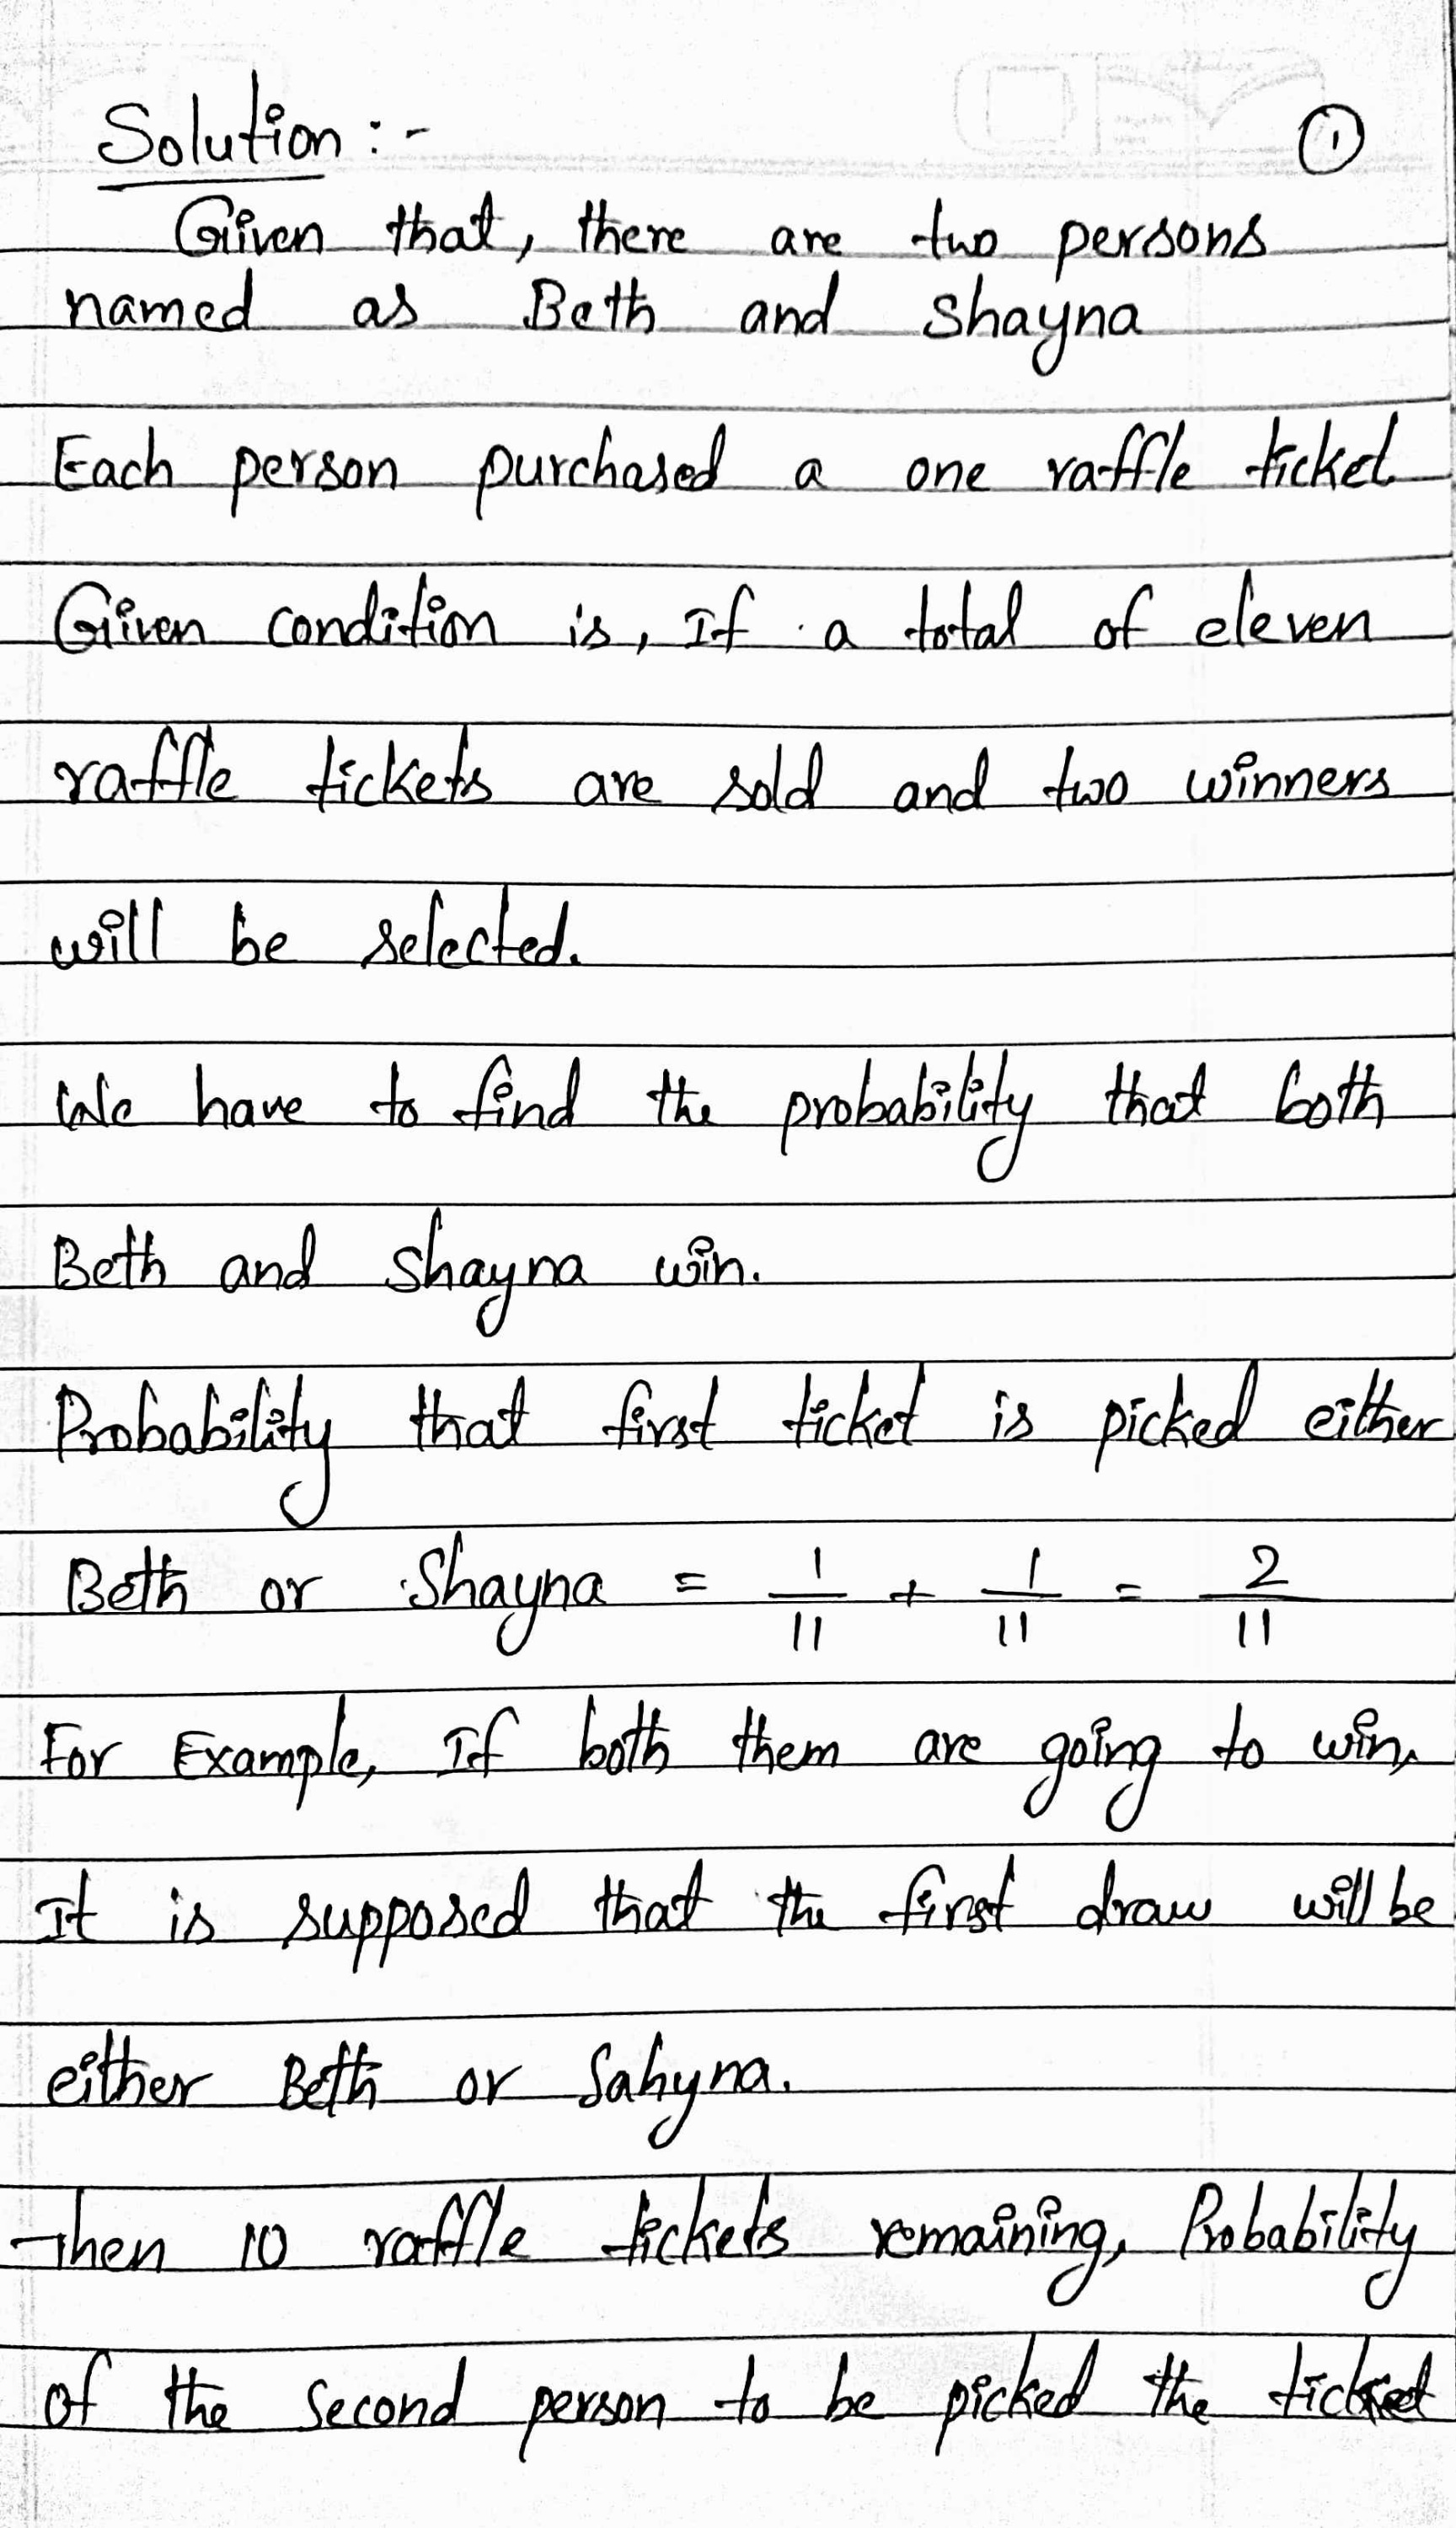 Solution :-
①
Given that, there are two persons
named as Beth and Shayna
Each person purchased a one raffle ticket
Given condition is, If a total of eleven
raffle tickets are sold and two winners
will be selected.
We have to find the probability that both
Beth and Shayna win.
Probability that first ticket is picked either
Beth or Shayna = 1/11 + 1/11 = 2/11
For Example, If both them are going to win,
It is supposed that the first draw will be
either Beth or Sahyna.
Then 10 raffle tickets remaining, Probability
of the second person to be picked the ticket